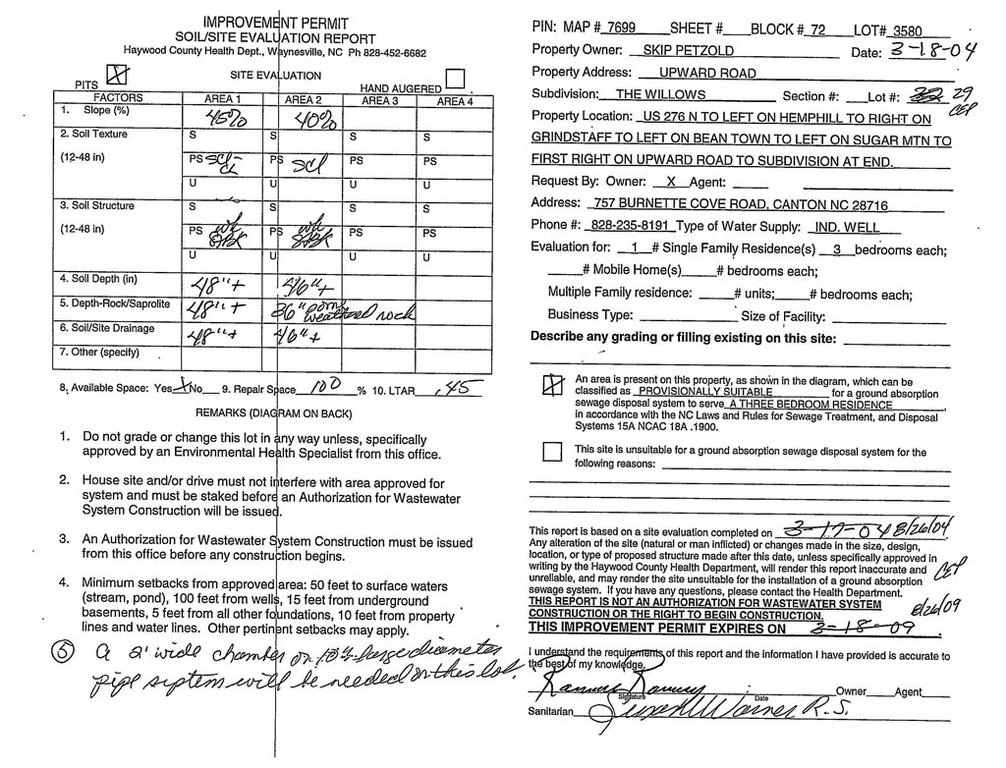 IMPROVEMENT PERMIT
SOIL/SITE EVALUATION REPORT
Haywood County Health Dept., Waynesville, NC Ph 828-452-6682
PITS X SITE EVALUATION HAND AUGERED
FACTORS AREA 1 AREA 2 AREA 3 AREA 4
1. Slope (%) 45% 40%
2. Soil Texture S S S S
(12-48 in) PS SCL- CL PS SCL PS PS
U U U U
3. Soil Structure S S S S
(12-48 in) PS wk SBK PS wk SBK PS PS
U U U U
4. Soil Depth (in) 48"+ 46"+
5. Depth-Rock/Saprolite 48"+ 36" some weathered rock
6. Soil/Site Drainage 48"+ 46"+
7. Other (specify)
8. Available Space: Yes X No 9. Repair Space 100 % 10. LTAR .45
REMARKS (DIAGRAM ON BACK)
1. Do not grade or change this lot in any way unless, specifically
approved by an Environmental Health Specialist from this office.
2. House site and/or drive must not interfere with area approved for
system and must be staked before an Authorization for Wastewater
System Construction will be issued.
3. An Authorization for Wastewater System Construction must be issued
from this office before any construction begins.
4. Minimum setbacks from approved area: 50 feet to surface waters
(stream, pond), 100 feet from wells, 15 feet from underground
basements, 5 feet from all other foundations, 10 feet from property
lines and water lines. Other pertinent setbacks may apply.
5 A 2' wide chamber or 10" large diameter
pipe system will be needed on this lot.
PIN: MAP # 7699 SHEET # BLOCK # 72 LOT# 3580
Property Owner: SKIP PETZOLD Date: 3-18-04
Property Address: UPWARD ROAD
Subdivision: THE WILLOWS Section #: Lot #: 29
CEP
Property Location: US 276 N TO LEFT ON HEMPHILL TO RIGHT ON
GRINDSTAFF TO LEFT ON BEAN TOWN TO LEFT ON SUGAR MTN TO
FIRST RIGHT ON UPWARD ROAD TO SUBDIVISION AT END.
Request By: Owner: X Agent:
Address: 757 BURNETTE COVE ROAD, CANTON NC 28716
Phone #: 828-235-8191 Type of Water Supply: IND. WELL
Evaluation for: 1 # Single Family Residence(s) 3 bedrooms each;
# Mobile Home(s) # bedrooms each;
Multiple Family residence: # units; # bedrooms each;
Business Type: Size of Facility:
Describe any grading or filling existing on this site:
X An area is present on this property, as shown in the diagram, which can be
classified as PROVISIONALLY SUITABLE for a ground absorption
sewage disposal system to serve A THREE BEDROOM RESIDENCE,
in accordance with the NC Laws and Rules for Sewage Treatment, and Disposal
Systems 15A NCAC 18A .1900.
This site is unsuitable for a ground absorption sewage disposal system for the
following reasons:
This report is based on a site evaluation completed on 3-17-04 8/26/04.
Any alteration of the site (natural or man inflicted) or changes made in the size, design,
location, or type of proposed structure made after this date, unless specifically approved in
writing by the Haywood County Health Department, will render this report inaccurate and
unreliable, and may render the site unsuitable for the installation of a ground absorption
sewage system. If you have any questions, please contact the Health Department.
CEP
THIS REPORT IS NOT AN AUTHORIZATION FOR WASTEWATER SYSTEM
CONSTRUCTION OR THE RIGHT TO BEGIN CONSTRUCTION.
8/26/09
THIS IMPROVEMENT PERMIT EXPIRES ON 3-18-09.
I understand the requirements of this report and the information I have provided is accurate to
the best of my knowledge.
Owner Agent
Signature Date
Sanitarian Warner R.S.